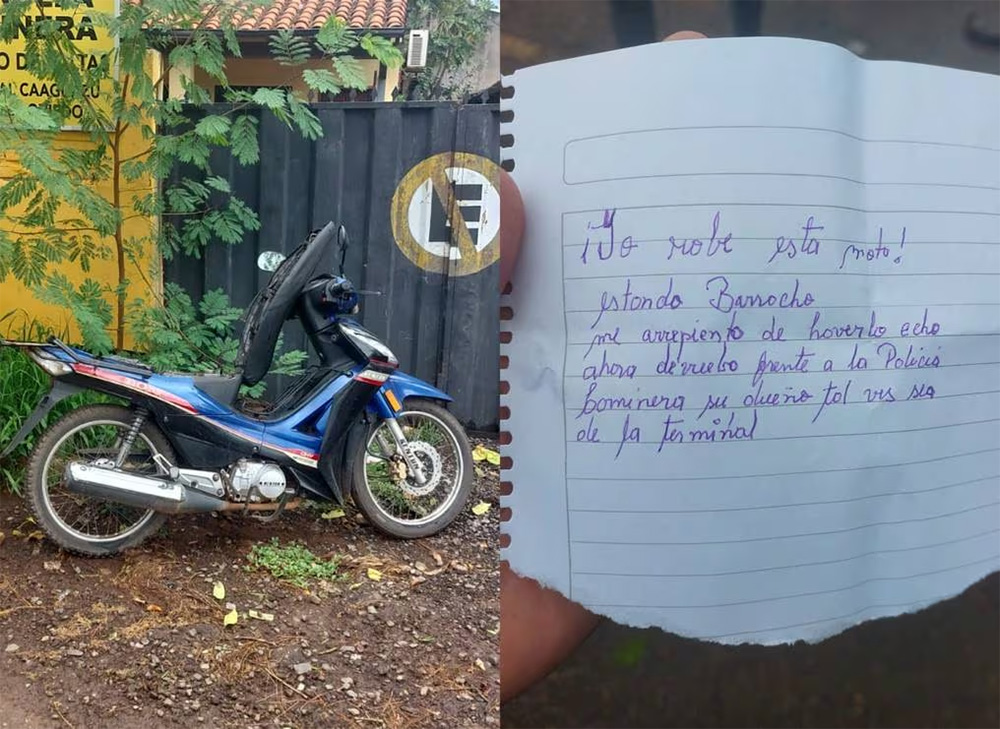 NERA
CAAGUAZU
OVIEDO
E
¡Yo robe esta moto!
estando Barrocho
me arrepiento de hoverlo echo
ahora devuelbo frente a la Policia
Cominera su dueño tol ves sea
de la terminal